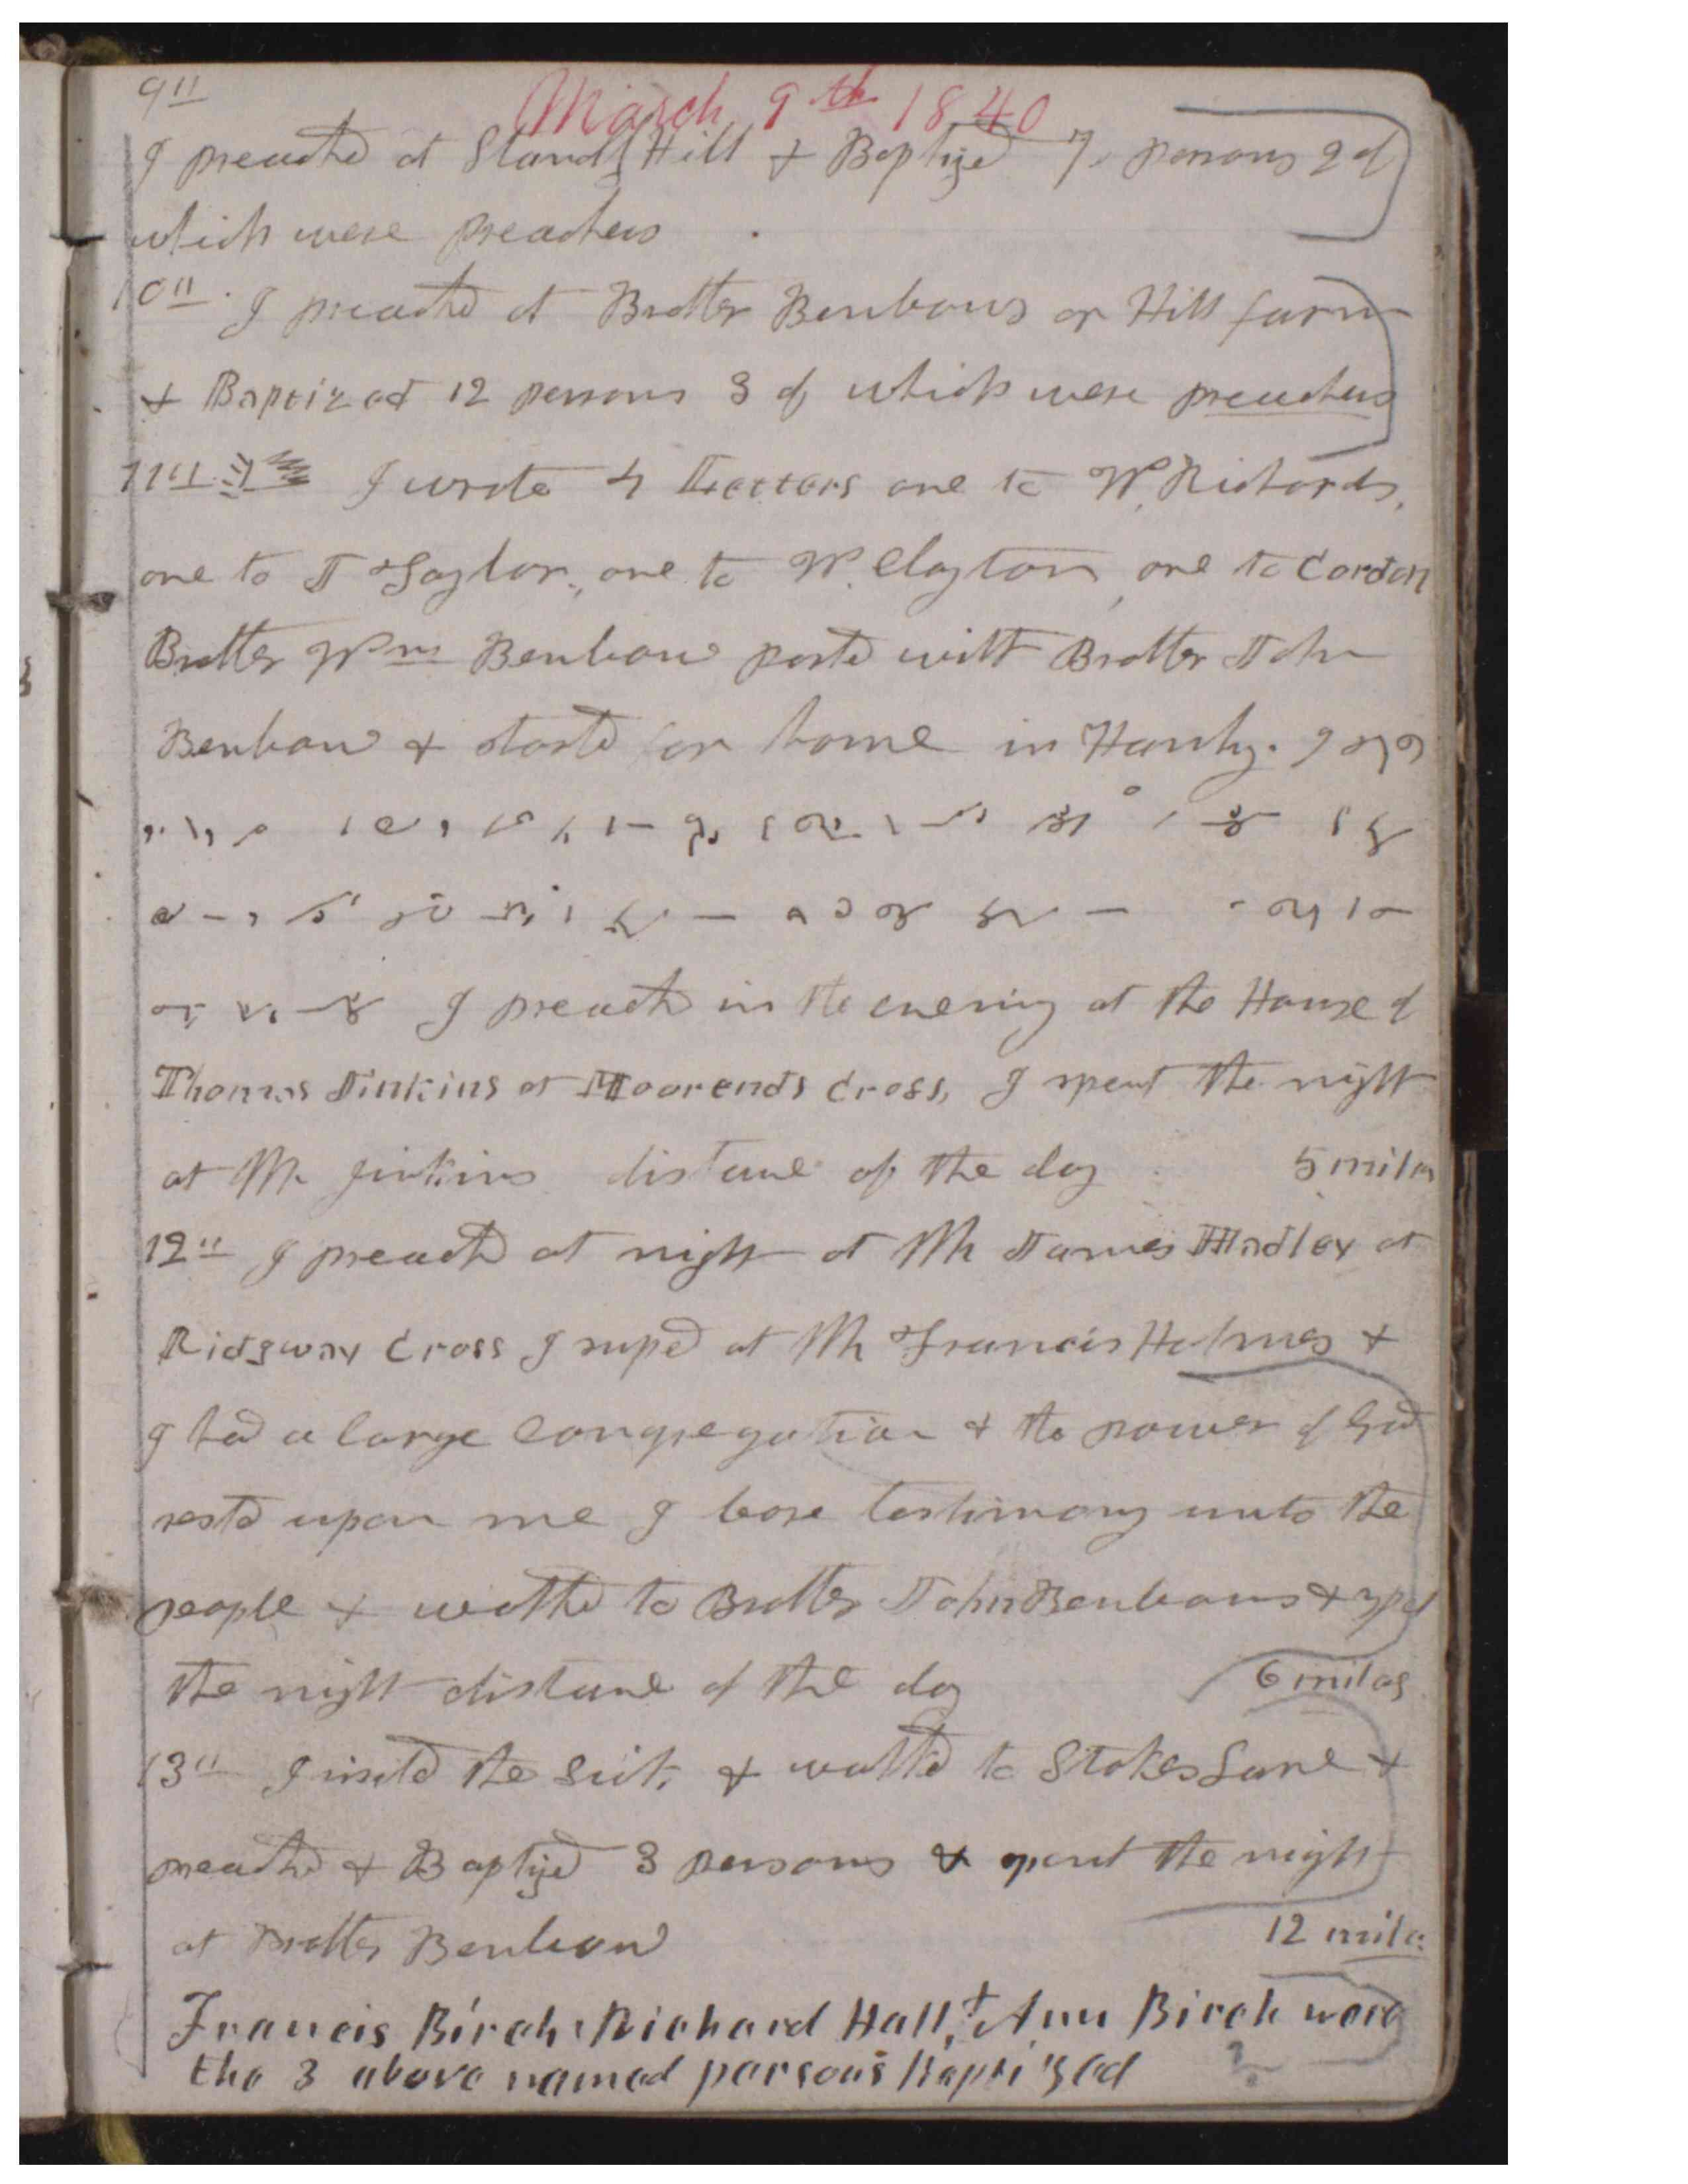 9th
March 9th 1840
I preachd at Standly Hill & Baptized 7 persons 2 of
which were preachers
10th I preachd at Brother Benbows or Hill farm
& Baptized 12 persons 3 of which were preachers
11th I wrote 4 Letters one to W. Richards,
one to J Taylor, one to W. Clayton, one to Cordon
Brother Wm Benbow partd with Brother John
Benbow & startd for home in Hanly.
I preachd in the evening at the House of
Thomas Jinkins at Moorends Cross, I spent the night
at Mr Jinkins distance of the day 5 miles
12th I preachd at night at Mr James Hadley at
Ridgway Cross I suped at Mr Francis Holmes &
I had a large congregation & the power of God
restd upon me I bore testimony unto the
people & walkd to Brother John Benbows &
the night distance of the day 6 miles
13th I visitd the sick & walkd to Stokes Lane &
preachd & Baptized 3 persons & spent the night
at Brother Benbow 12 miles
Francis Birch, Richard Hall, + Ann Birch were
the 3 above named persons Baptized